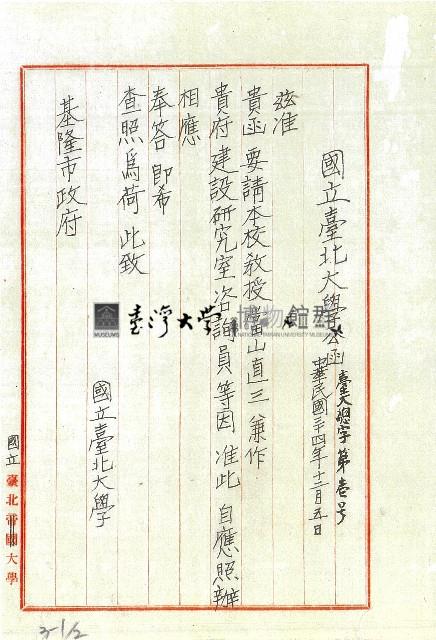 國立臺北大學公函
臺大總字第壹号
中華民國三十四年十二月五日
茲准
貴函 要請本校教授富山直三 兼作
貴府建設研究室咨詢員等因 准此 自應照辦
相應
奉答 即希
查照為荷 此致
基隆市政府
國立臺北大學
國立
臺北帝國大學
臺灣大學
博物館群
MUSEUMS
NATIONAL TAIWAN UNIVERSITY MUSEUMS
3-1/2